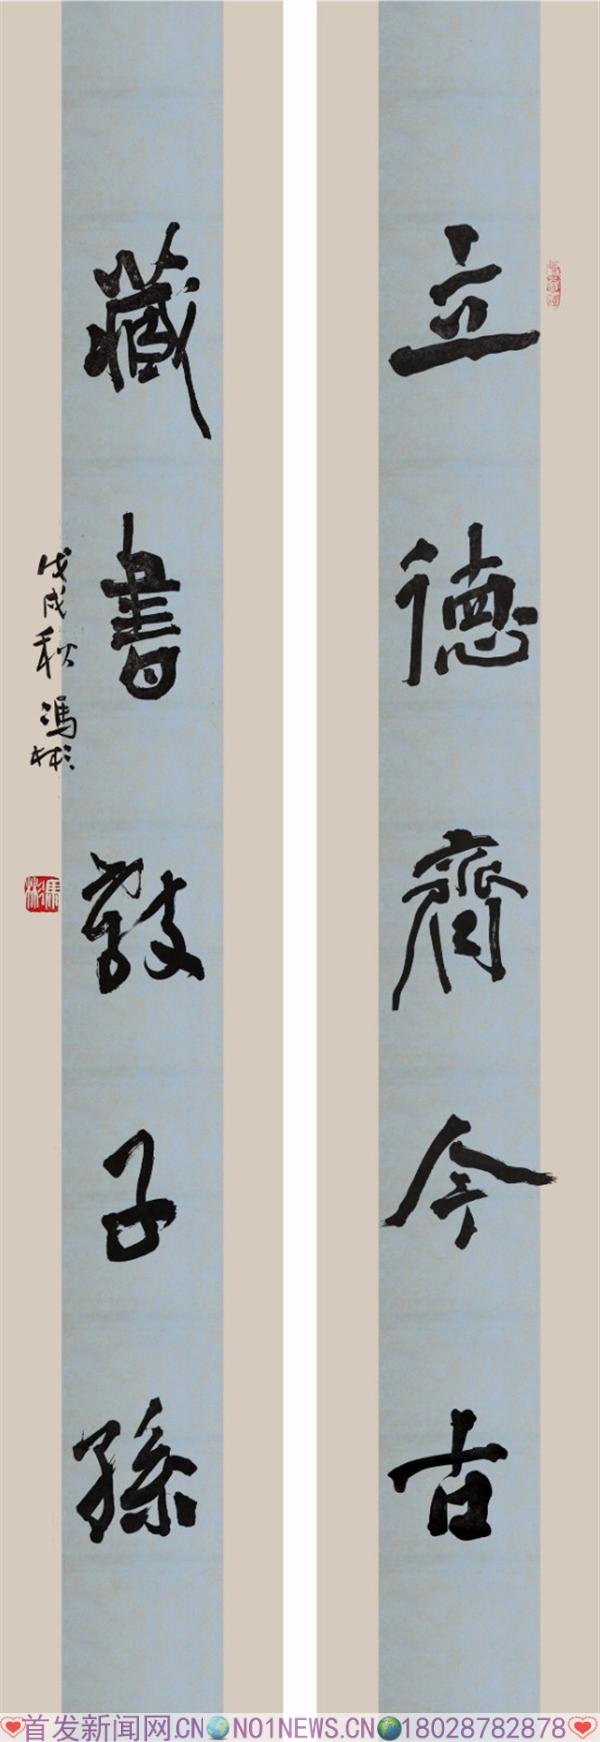 立德齊今古
藏書教子孫
戊戌秋 馮彬
馮彬
首发新闻网.CN NO1NEWS.CN 18028782878